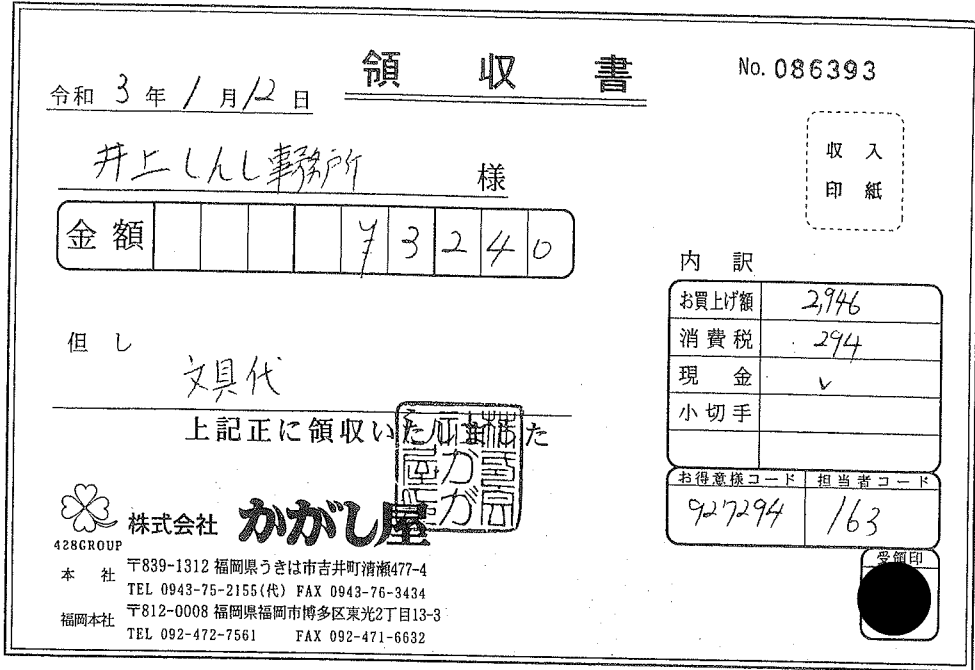 領収書
No. 086393
令和 3 年 1 月 12 日
井上しんし事務所 様
収入
印紙
金額 ¥3240
内訳
お買上げ額 2,946
消費税 294
現金 ✓
小切手
但し
文具代
上記正に領収いたしました
お得意様コード 担当者コード
927294 163
428GROUP
株式会社 かがし屋
受領印
本社 〒839-1312 福岡県うきは市吉井町清瀬477-4
TEL 0943-75-2155(代) FAX 0943-76-3434
福岡本社 〒812-0008 福岡県福岡市博多区東光2丁目13-3
TEL 092-472-7561 FAX 092-471-6632